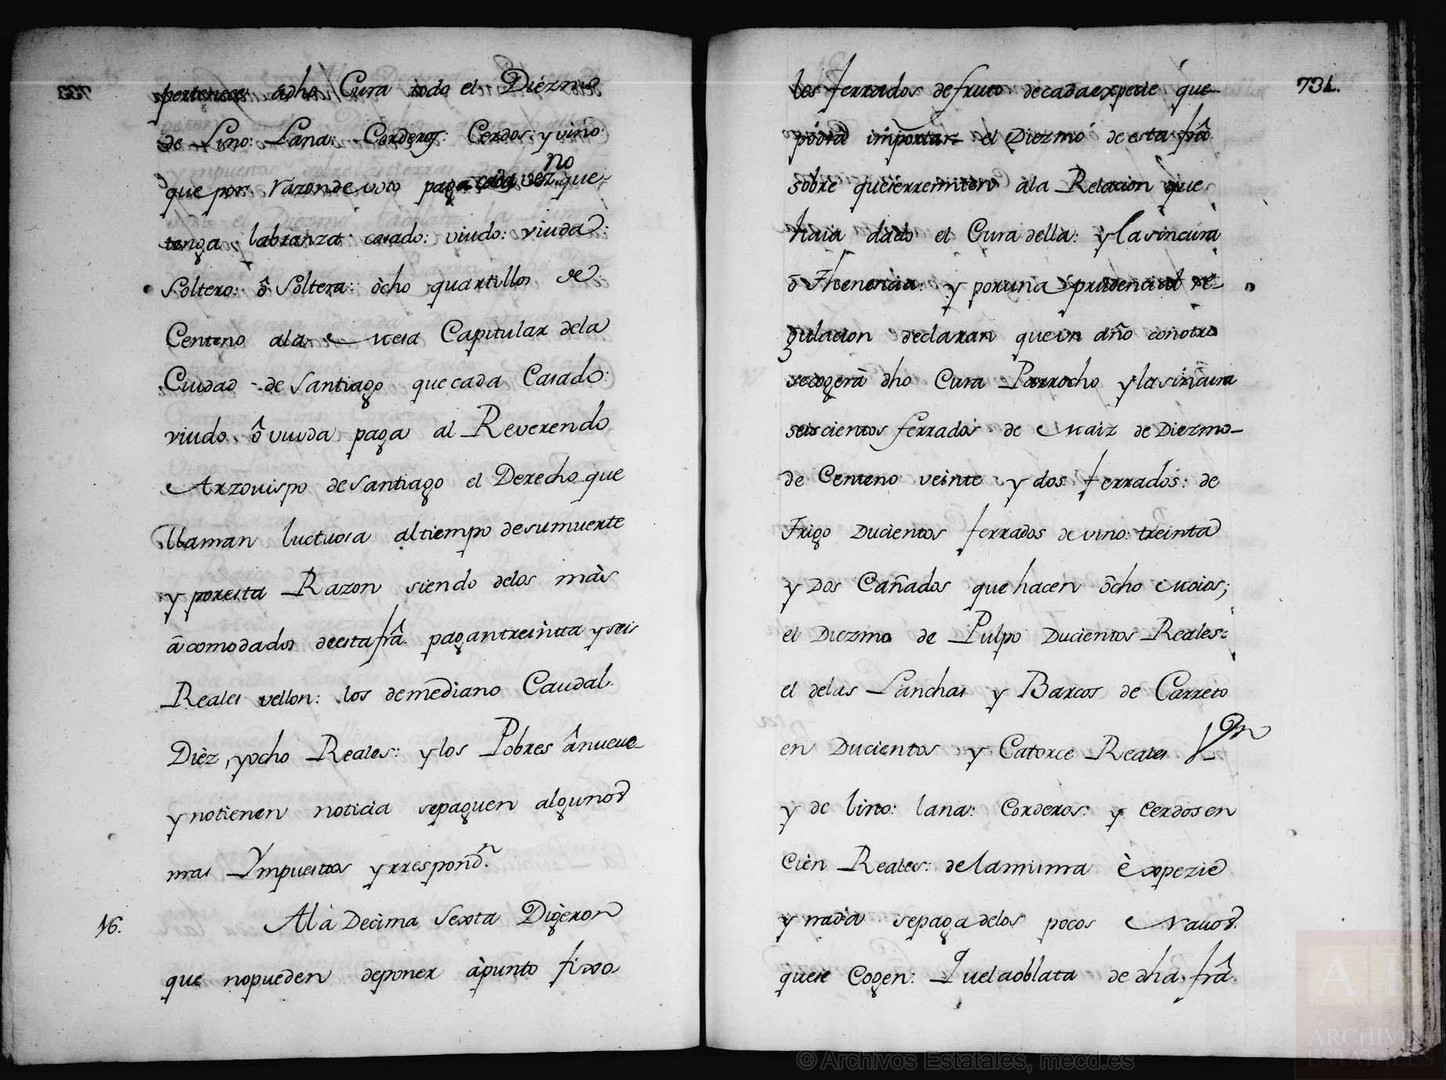 pertenece âdho Cura todo el Diézmo
de Lino: Lana: Corderos: Cerdos: y vino:
no
que por razon de voto paga cada vezº que
tenga labranza casado: viudo: viuda:
Soltero: ô Soltera: òcho quartillos de
Centeno ala Mesa Capitular dela
Ciudad de Santiago que cada Casado:
viudo. ô viuda paga al Reverendo
Arzovispo de Santiago el Derecho que
llaman luctuosa altiempo desumuerte
y poresta Razon siendo delos màs
âcomodados deestafrâ. pagan treintta y seis
Reales vellon: los demediano Caudal.
Dièz, yocho Reales: y los Pobres ânueve
y notienen noticia sepaguen algunos
mas Ympuestos yrrespondn.
16. Alà Decima Sexta Digeron
que nopueden deponer àpunto fixo
731.
los ferrados defruto decadaexpezie que
podrà importar el Diezmo de esta frâ
sobre queserremiten ala Relacion que
haia dado el Cura della: ylasincura
ô Thenencia: y poruna prudencial re-
gulacion declaran queun año conotro
recogerà dho Cura Parrocho ylasincura
seiscientos ferrados de Maiz de Diezmo
de Centeno veinte y dos ferrados: de
Trigo Ducientos ferrados de vino: treinta
y Dos Cañados que hacen ôcho Moios;
el Diezmo de Pulpo Ducientos Reales:
el delas Lanchas y Barcos de Carreto
en Ducientos y Catorce Reales
y de lino: lana: Corderos: y Cerdos en
Cièn Reales: delamisma èxpezie
y nada sepaga delos pocos Navos
quese Cogen: Quelaoblata de dha. frâ.
© Archivos Estatales, mecd.es
ARCHIVOS
ESTATALES